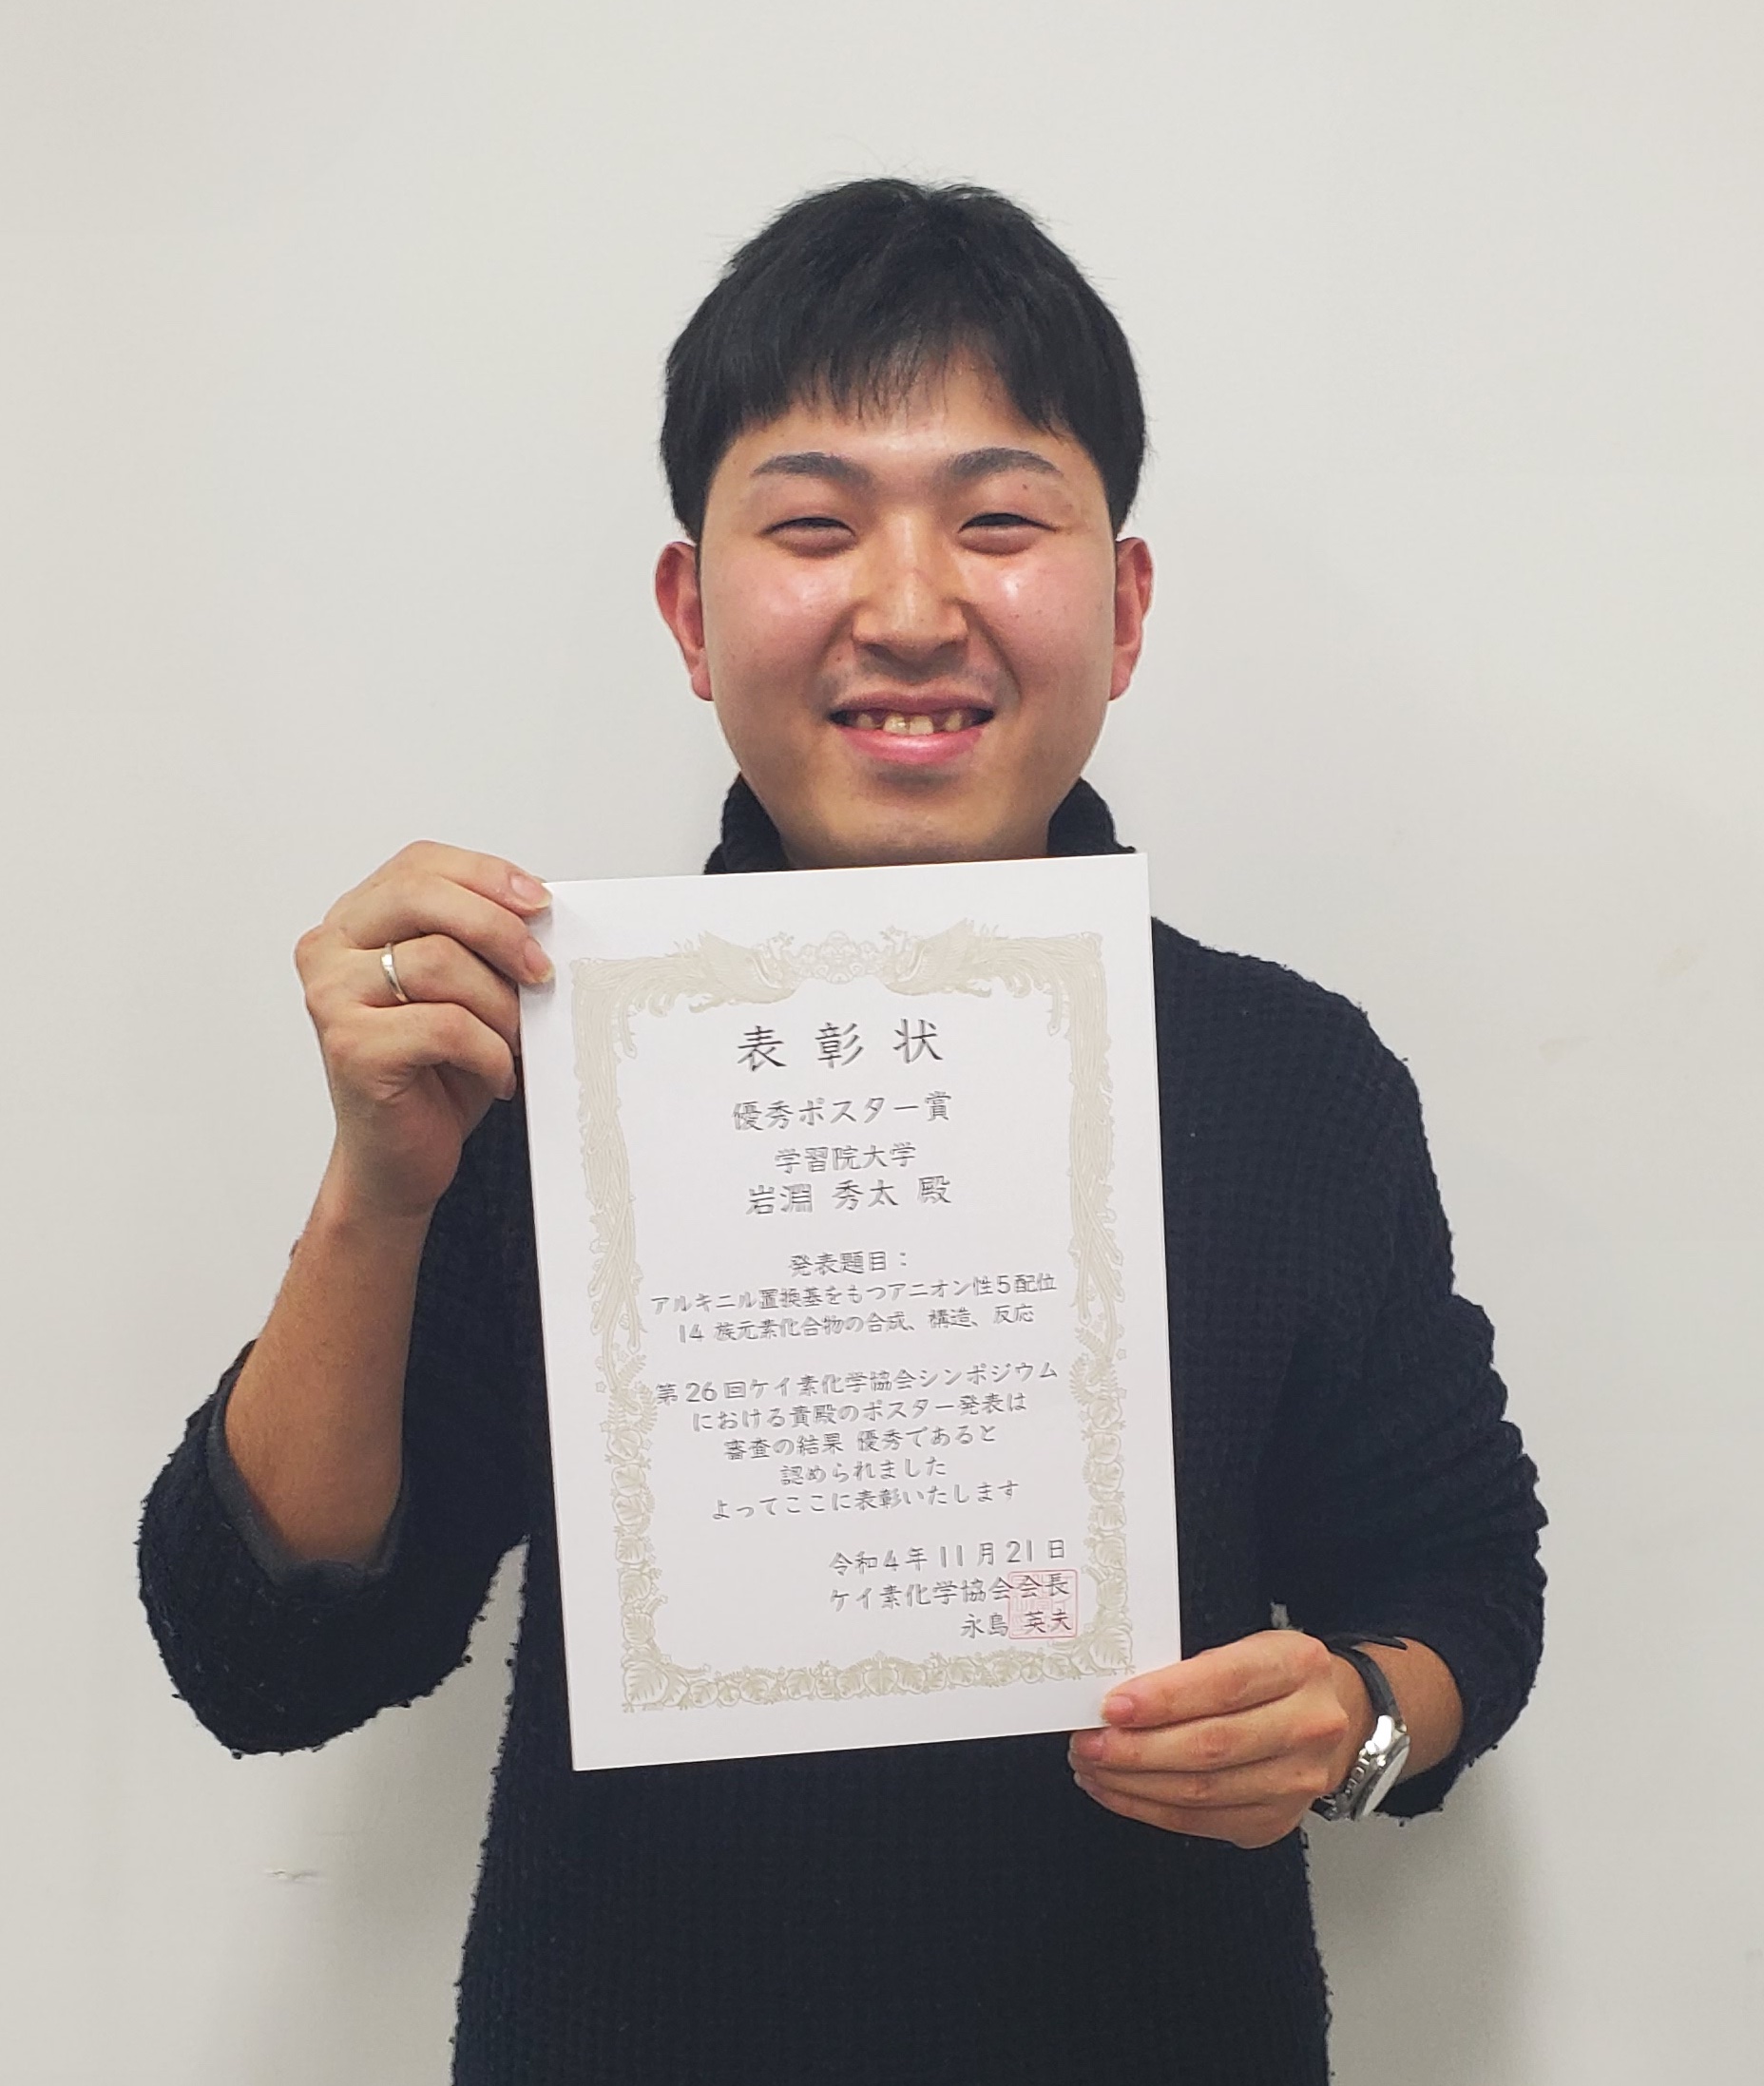 表彰状
優秀ポスター賞
学習院大学
岩淵 秀太 殿
発表題目：
アルキニル置換基をもつアニオン性5配位
14 族元素化合物の合成、構造、反応
第26回ケイ素化学協会シンポジウム
における貴殿のポスター発表は
審査の結果 優秀であると
認められました
よってここに表彰いたします
令和4年11月21日
ケイ素化学協会会長
永島 英夫